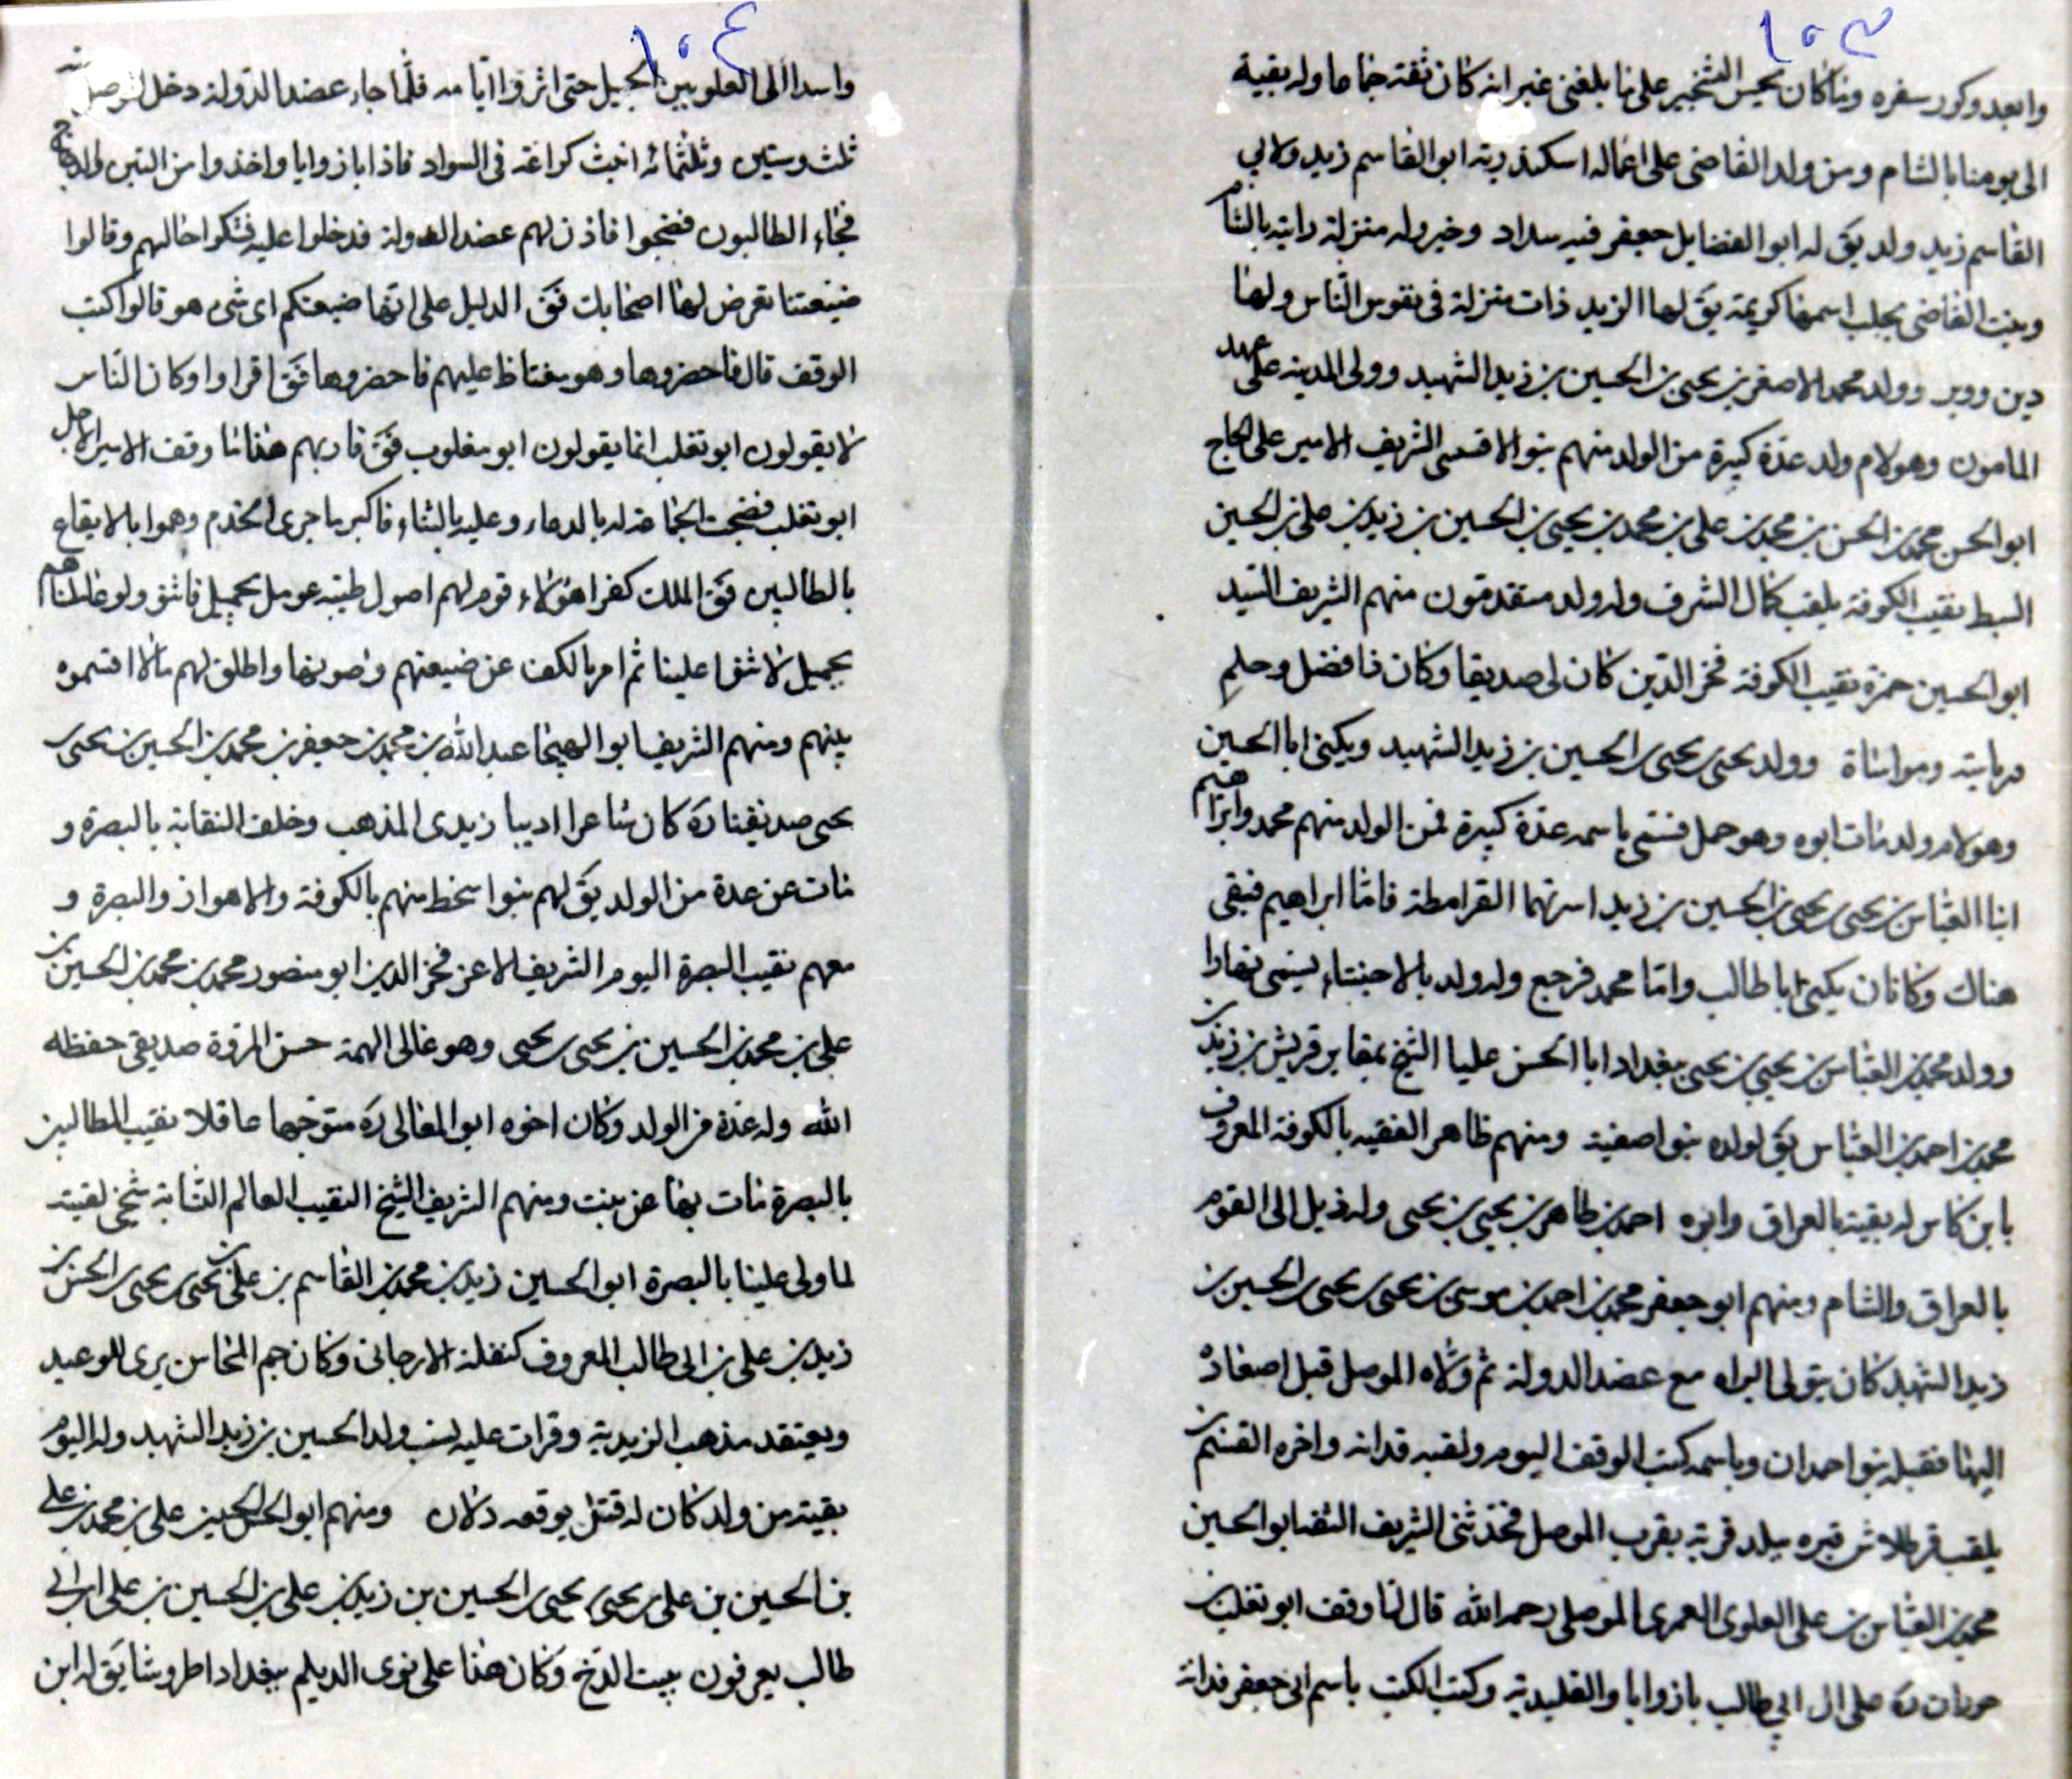 ١٠٣
وابعد وكور سفره وما كان يحسن التنجيم على ما بلغني غير انه كان ثقة جماعا وله بقية
الى يومنا بالشام ومن ولد القاضي على اعماله اسكندرية ابو القاسم زيد ولابي
القاسم زيد ولد يق له ابو الفضايل جعفر فيه سداد وخير وله منزلة رايته بالشام
وبنت القاضي بحلب اسمها كريمة يق لها الزيد ذات منزلة في نفوس الناس ولها
دين وولد محمد الاصغر بن يحيى بن الحسين بن زيد الشهيد وولى المدينة على عهد
المامون وهو لام ولد عدة كبيرة من الولد منهم بنو الاقسسى الشريف الامير على الحاج
ابو الحسن محمد بن الحسن بن محمد بن على بن محمد بن يحيى بن الحسين بن زيد بن على بن الحسين
السبط نقيب الكوفة يلقب كمال الشرف وله ولد متقدمون منهم الشريف السيد
ابو الحسين حمزة نقيب الكوفة فخر الدين كان لى صديقا وكان ذا فضل وحلم
ورياسة ومواساة وولد يحيى بن يحيى بن الحسين بن زيد الشهيد ويكنى ابا الحسين
وهو لام ولد مات ابوه وهو حمل فسمى باسمه عدة كبيرة فمن الولد منهم محمد وابراهيم
ابنا العباس بن يحيى بن يحيى بن الحسين بن زيد اسرتهما القرامطة فاما ابراهيم فبقى
هناك وكان يكنى ابا طالب واما محمد فرجع وله ولد بالاحساء يسمى نهارا
وولد محمد بن العباس بن يحيى بن يحيى ببغداد ابا الحسن عليا الشيخ بمقابر قريش بن زيد بن
محمد بن احمد بن العباس يق لولده بنو اصفية ومنهم طاهر الفقيه بالكوفة المعروف
بابن كاس له بقية بالعراق وابوه احمد بن طاهر بن يحيى بن يحيى وله ذيل الى القوم
بالعراق والشام ومنهم ابو جعفر محمد بن احمد بن موسى بن يحيى بن يحيى بن الحسين بن
زيد الشهيد كان يتولى البراه مع عضد الدولة ثم ولاه الموصل قبل اصعاده
اليها فقبله بنو احمدان وباسمه كتب الوقف اليوم ولقبه قدانه واخره القسم بن
يلقب قبره ببلد قرية بقرب الموصل فحدثنى الشريف الثقة ابو الحسين
محمد بن العباس بن على العلوى العمرى الموصلى رحمه الله قال لما وقف ابو تغلب بن
حمدان ره على ال ابي طالب بازوايا والقليدية وكتب الكتب باسم ابى جعفر قدانه
١٠٤
واسدا الى العلويين الجميل حتى اثروا ايامه فلما جاء عضد الدولة دخل الموصل سنة
ثلث وستين وثلثمائه انبث كراعه فى السواد فاذا بازوايا واخذوا من التبن والدجاج
فجاء الطالبون فضجوا فاذن لهم عضد الدولة فدخلوا عليه فشكوا حالهم وقالوا
ضيعتنا تعرض لها اصحابك فق الدليل على انها ضيعتكم اى شى هو قالوا كتب
الوقف قال فاحضروها وهو مغتاظ عليهم فاحضروها فق اقراوا وكان الناس
لا يقولون ابو تغلب انما يقولون ابو مغلوب فق قاريهم هذا ما وقف الامير الاجل
ابو تغلب فضجت الجماعة له بالدعاء وعليه بالثناء فاكبر ما جرى الخدم وهموا بالايقاع
بالطالبين فق الملك كفوا هؤلاء قوم لهم اصول طيبة عوملوا بجميل فاثنوا ولو عاملناهم
بجميل لاثنوا علينا ثم امر بالكف عن ضيعتهم وصونها واطلق لهم مالا اقتسموه
بينهم ومنهم الشريف ابو الهيجا عبد الله بن محمد بن جعفر بن محمد بن الحسين بن يحيى بن
يحيى صديقنا ره كان شاعرا اديبا زيدى المذهب وخلف النقابة بالبصرة و
مات عن عدة من الولد يق لهم بنوا سخط منهم بالكوفة والاهواز والبصرة و
معهم نقيب البصرة اليوم الشريف الاعز فخر الدين ابو منصور محمد بن محمد بن الحسين بن
على بن محمد بن الحسين بن يحيى بن يحيى وهو عالى الهمة حسن المروة صديقى حفظه
الله وله عدة من الولد وكان اخوه ابو المعالى ره متوجها عاقلا نقيب الطالبين
بالبصرة مات بها عن بنت ومنهم الشريف الشيخ النقيب العالم النسابة شيخى لقيته
لما ولى علينا بالبصرة ابو الحسين زيد بن محمد بن القاسم بن على بن يحيى بن يحيى بن الحسين بن
زيد بن على بن ابى طالب المعروف كتفلة الارجانى وكان جم المحاسن يرى للوعيد
ويعتقد مذهب الزيدية وقرات عليه نسب ولد الحسين بن زيد الشهيد وله اليوم
بقية من ولد كان له قتل بوقعه دلان ومنهم ابو الحسين على بن محمد بن على
بن الحسين بن على بن يحيى بن يحيى بن الحسين بن زيد بن على بن الحسين بن على بن ابى
طالب يعرفون ببيت الدخ وكان هذا على نوى الديلم ببغداد اطروشا يق له ابن